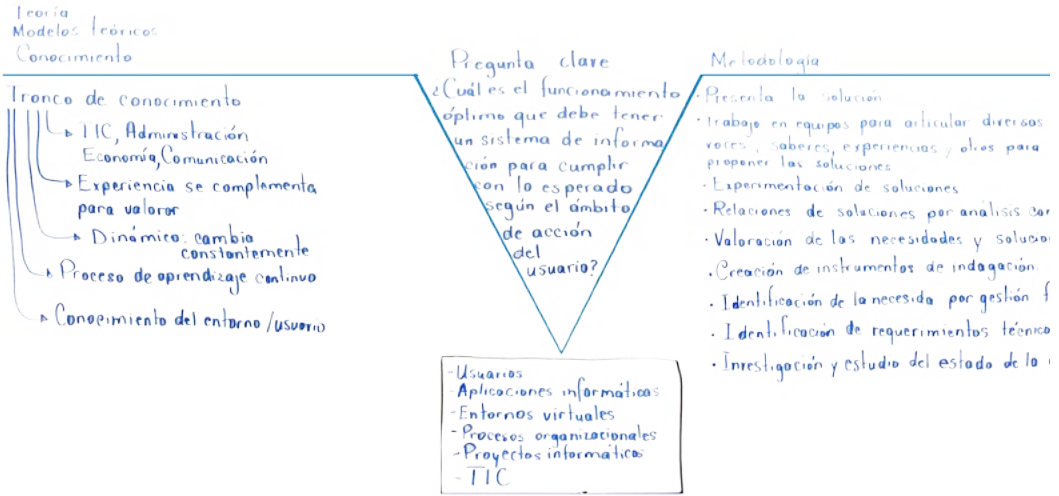 Teoría
Modelos teóricos
Conocimiento
Tronco de conocimiento
TIC, Administración
Economía, Comunicación
Experiencia se complementa
para valorar
Dinámico: cambia
constantemente
Proceso de aprendizaje continuo
Conocimiento del entorno/usuario
Pregunta clave
¿Cuál es el funcionamiento
óptimo que debe tener
un sistema de informa
ción para cumplir
con lo esperado
según el ámbito
de acción
del
usuario?
-Usuarios
-Aplicaciones informáticas
-Entornos virtuales
-Procesos organizacionales
-Proyectos informáticos
-TIC
Metodología
·Presenta la solución
·trabajo en equipos para articular diversos
voces, saberes, experiencias, otros para
proponer las soluciones
·Experimentación de soluciones
·Relaciones de soluciones por análisis
·Valoración de las necesidades y
·Creación de instrumentos de indagación.
·Identificación de la necesida por gestión
·Identificación de requerimientos
·Investigación y estudio del estado de la